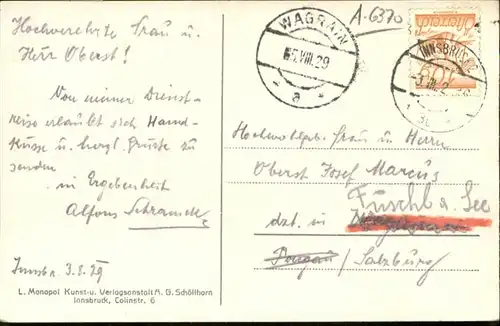 Hochverehrte Frau u.
Herr Oberst!
Von meiner Dienst-
reise erlaubt sich Hand-
küsse u. herzl. Grüße zu
senden
in Ergebenheit
Alfons Schramek
Innsbr. 3.8.29
L. Monopol Kunst-u. Verlagsanstalt A. G. Schöllhorn
Innsbruck, Colinstr. 6
A-6370
WAGRAIN
5.VIII.29
a
INNSBRUCK
Österreich
Hochwohlgeb. Frau u. Herrn
Oberst Josef Marcus
Fuschl a. See
dzt. in
Pongau / Salzburg